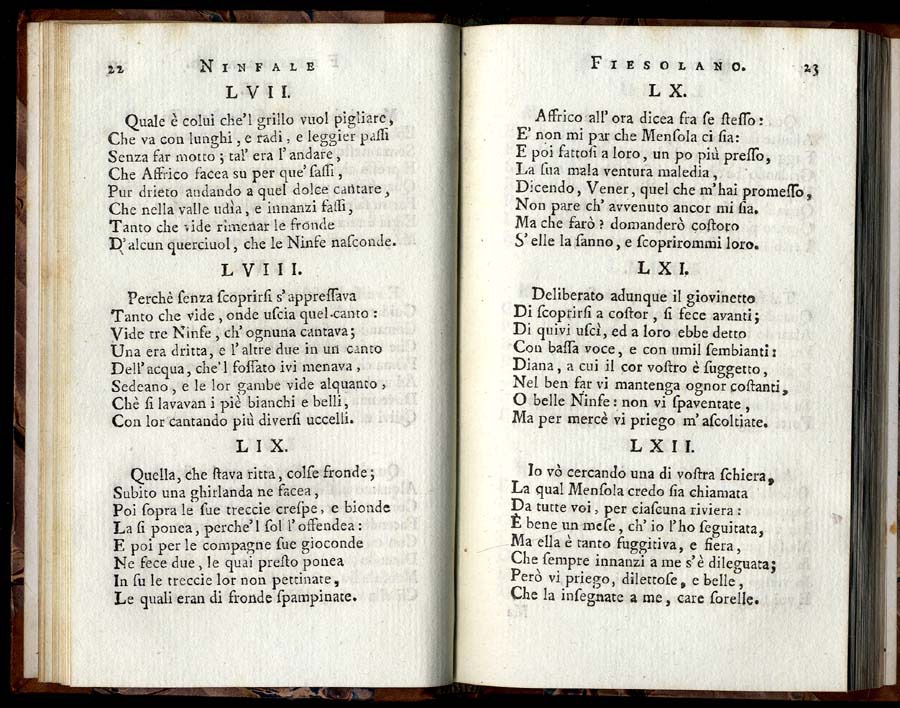 22 NINFALE
LVII.
Quale è colui che'l grillo vuol pigliare,
Che va con lunghi, e radi, e leggier paſſi
Senza far motto; tal' era l' andare,
Che Affrico facea su per que' ſaſſi,
Pur drieto andando a quel dolce cantare,
Che nella valle udìa, e innanzi faſſi,
Tanto che vide rimenar le fronde
D' alcun querciuol, che le Ninfe naſconde.
LVIII.
Perchè ſenza ſcoprirſi s' appreſſava
Tanto che vide, onde uſcia quel canto:
Vide tre Ninfe, ch' ognuna cantava;
Una era dritta, e l' altre due in un canto
Dell' acqua, che'l foſſato ivi menava,
Sedeano, e le lor gambe vide alquanto,
Chè ſi lavavan i piè bianchi e belli,
Con lor cantando più diverſi uccelli.
LIX.
Quella, che ſtava ritta, colſe fronde;
Subito una ghirlanda ne facea,
Poi ſopra le ſue treccie creſpe, e bionde
La ſi ponea, perche'l ſol l' offendea:
E poi per le compagne ſue gioconde
Ne fece due, le quai preſto ponea
In ſu le treccie lor non pettinate,
Le quali eran di fronde ſpampinate.
FIESOLANO. 23
LX.
Affrico all' ora dicea fra ſe ſteſſo:
E' non mi par che Menſola ci ſia:
E poi fattoſi a loro, un po più preſſo,
La ſua mala ventura maledia,
Dicendo, Vener, quel che m' hai promeſſo,
Non pare ch' avvenuto ancor mi ſia.
Ma che farò? domanderò coſtoro
S' elle la ſanno, e ſcoprirommi loro.
LXI.
Deliberato adunque il giovinetto
Di ſcoprirſi a coſtor, ſi fece avanti;
Di quivi uſcì, ed a loro ebbe detto
Con baſſa voce, e con umil ſembianti:
Diana, a cui il cor voſtro è ſuggetto,
Nel ben far vi mantenga ognor coſtanti,
O belle Ninfe: non vi ſpaventate,
Ma per mercè vi priego m' aſcoltiate.
LXII.
Io vò cercando una di voſtra ſchiera,
La qual Menſola credo ſia chiamata
Da tutte voi, per ciaſcuna riviera:
È bene un meſe, ch' io l' ho ſeguitata,
Ma ella è tanto fuggitiva, e fiera,
Che ſempre innanzi a me s' è dileguata;
Però vi priego, dilettoſe, e belle,
Che la inſegnate a me, care ſorelle.